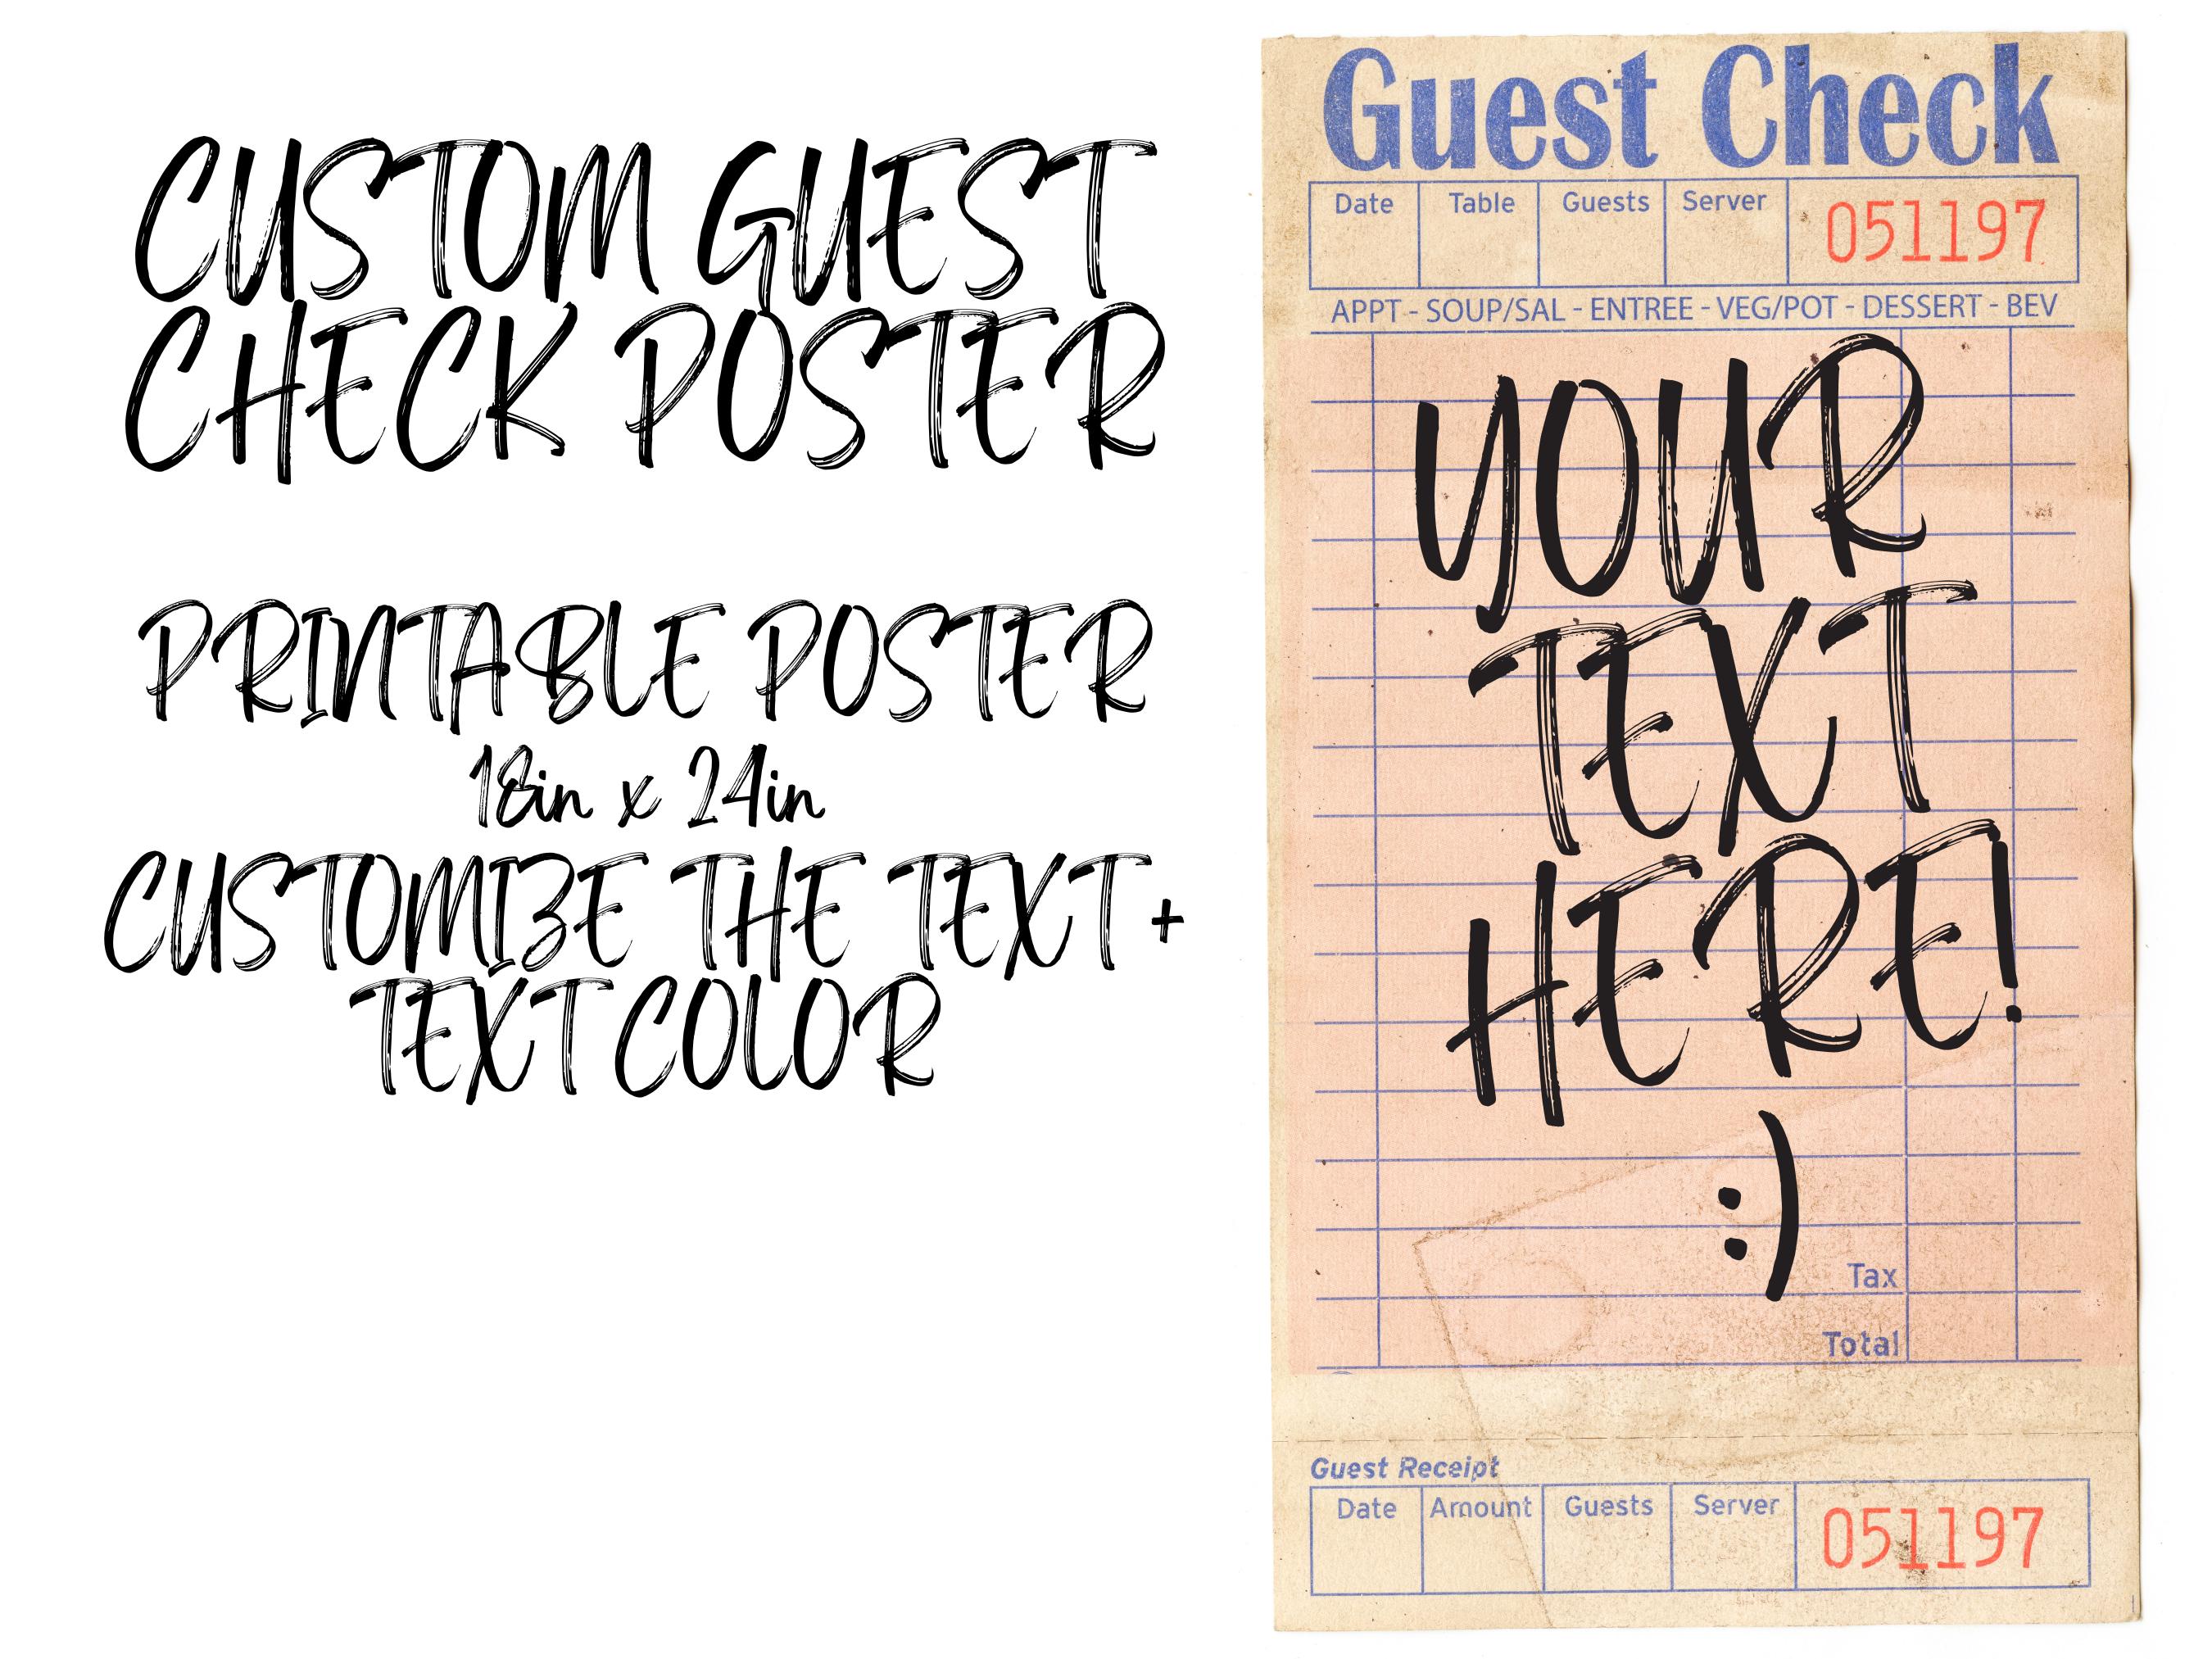 CUSTOM GUEST
CHECK POSTER
PRINTABLE POSTER
18in x 24in
CUSTOMIZE THE TEXT +
TEXT COLOR
Guest Check
Date Table Guests Server 051197
APPT - SOUP/SAL - ENTREE - VEG/POT - DESSERT - BEV
YOUR
TEXT
HERE!
:)
Tax
Total
Guest Receipt
Date Amount Guests Server 051197